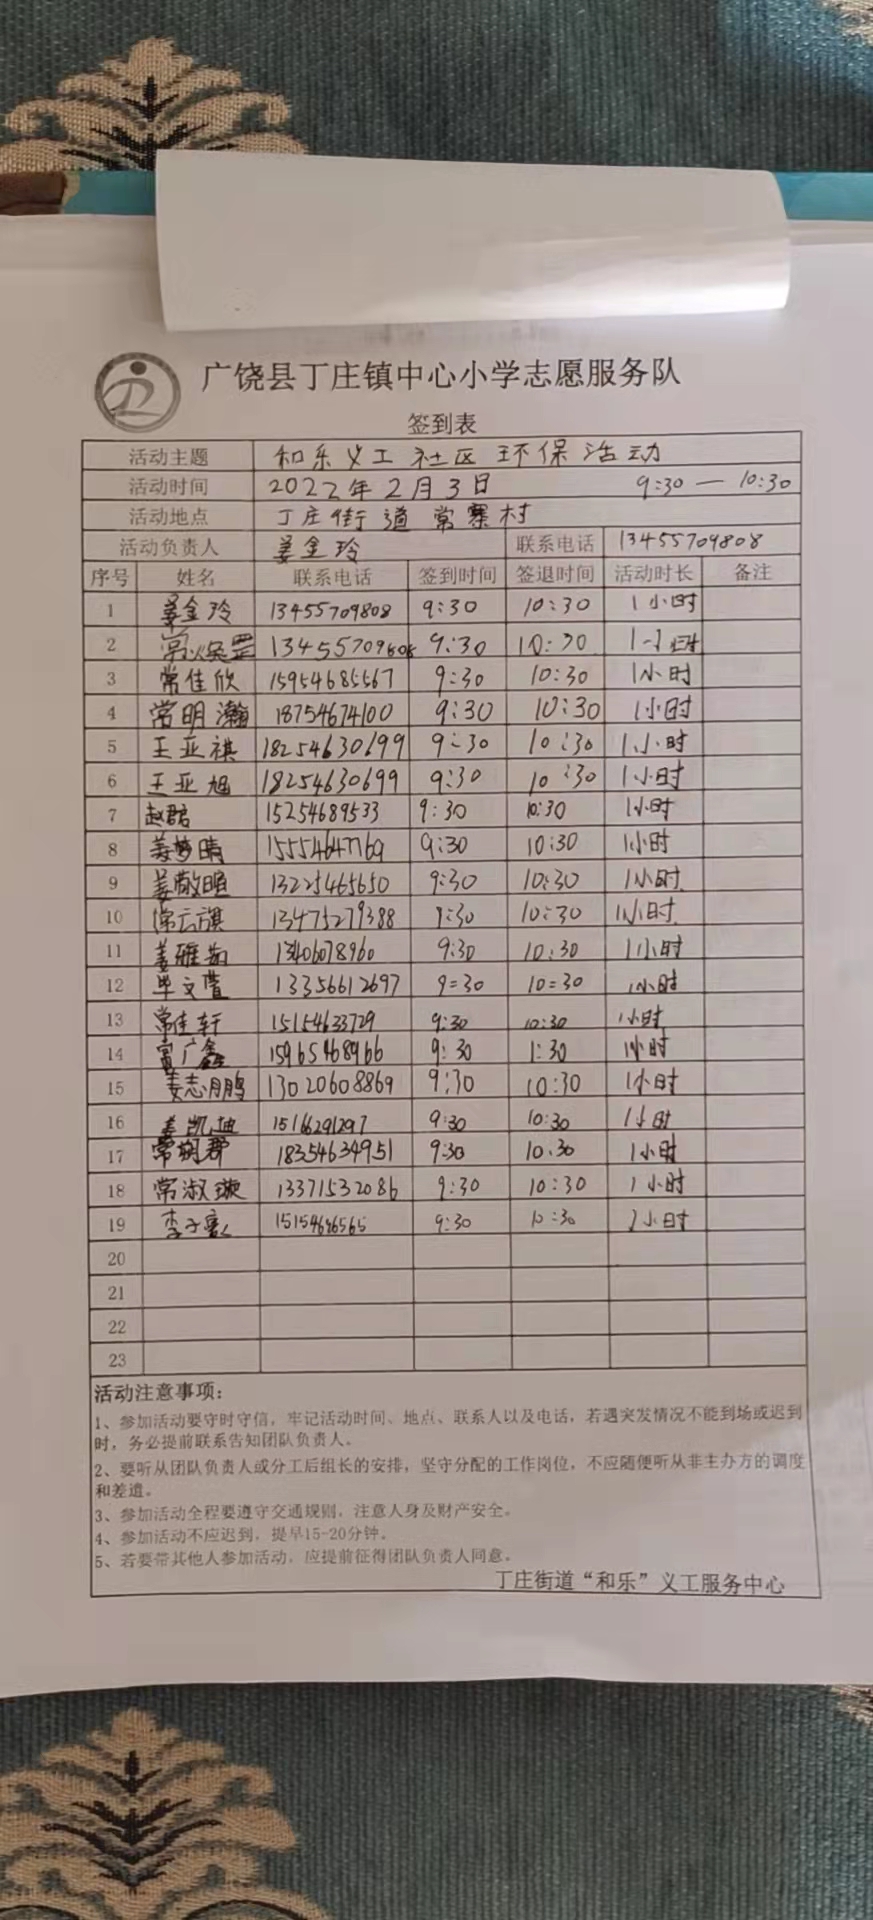 广饶县丁庄镇中心小学志愿服务队
签到表
活动主题 和乐义工社区环保活动
活动时间 2022年2月3日 9:30—10:30
活动地点 丁庄街道常寨村
活动负责人 姜金玲 联系电话 13455709808
序号 姓名 联系电话 签到时间 签退时间 活动时长 备注
1 姜金玲 13455709808 9:30 10:30 1小时
2 9:30 10:30 1小时
3 常佳欣 15954685567 9:30 10:30 1小时
4 常明瀚 18754674100 9:30 10:30 1小时
5 王亚祺 18254630699 9:30 10:30 1小时
6 王亚旭 18254630699 9:30 10:30 1小时
7 赵君 15254689533 9:30 10:30 1小时
8 姜梦晴 15554647769 9:30 10:30 1小时
9 姜敬暄 13225465650 9:30 10:30 1小时
10 常云旗 13475279388 9:30 10:30 1小时
11 姜雅茹 13406078960 9:30 10:30 1小时
12 毕文萱 13356612697 9=30 10=30 1小时
13 常佳轩 15154633729 9:30 10:30 1小时
14 广鑫 15965468966 9:30 1:30 1小时
15 姜志鹏 13020608869 9:30 10:30 1小时
16 姜凯迪 15166291297 9:30 10:30 1小时
17 18354634951 9:30 10.30 1小时
18 常淑璇 13371532086 9:30 10:30 1小时
19 李子 15154686565 9:30 10:30 1小时
20
21
22
23
活动注意事项:
1、参加活动要守时守信，牢记活动时间、地点、联系人以及电话，若遇突发情况不能到场或迟到
时，务必提前联系告知团队负责人。
2、要听从团队负责人或分工后组长的安排，坚守分配的工作岗位，不应随便听从非主办方的调度
和差遣。
3、参加活动全程要遵守交通规则，注意人身及财产安全。
4、参加活动不应迟到，提早15-20分钟。
5、若要带其他人参加活动，应提前征得团队负责人同意。
丁庄街道“和乐”义工服务中心